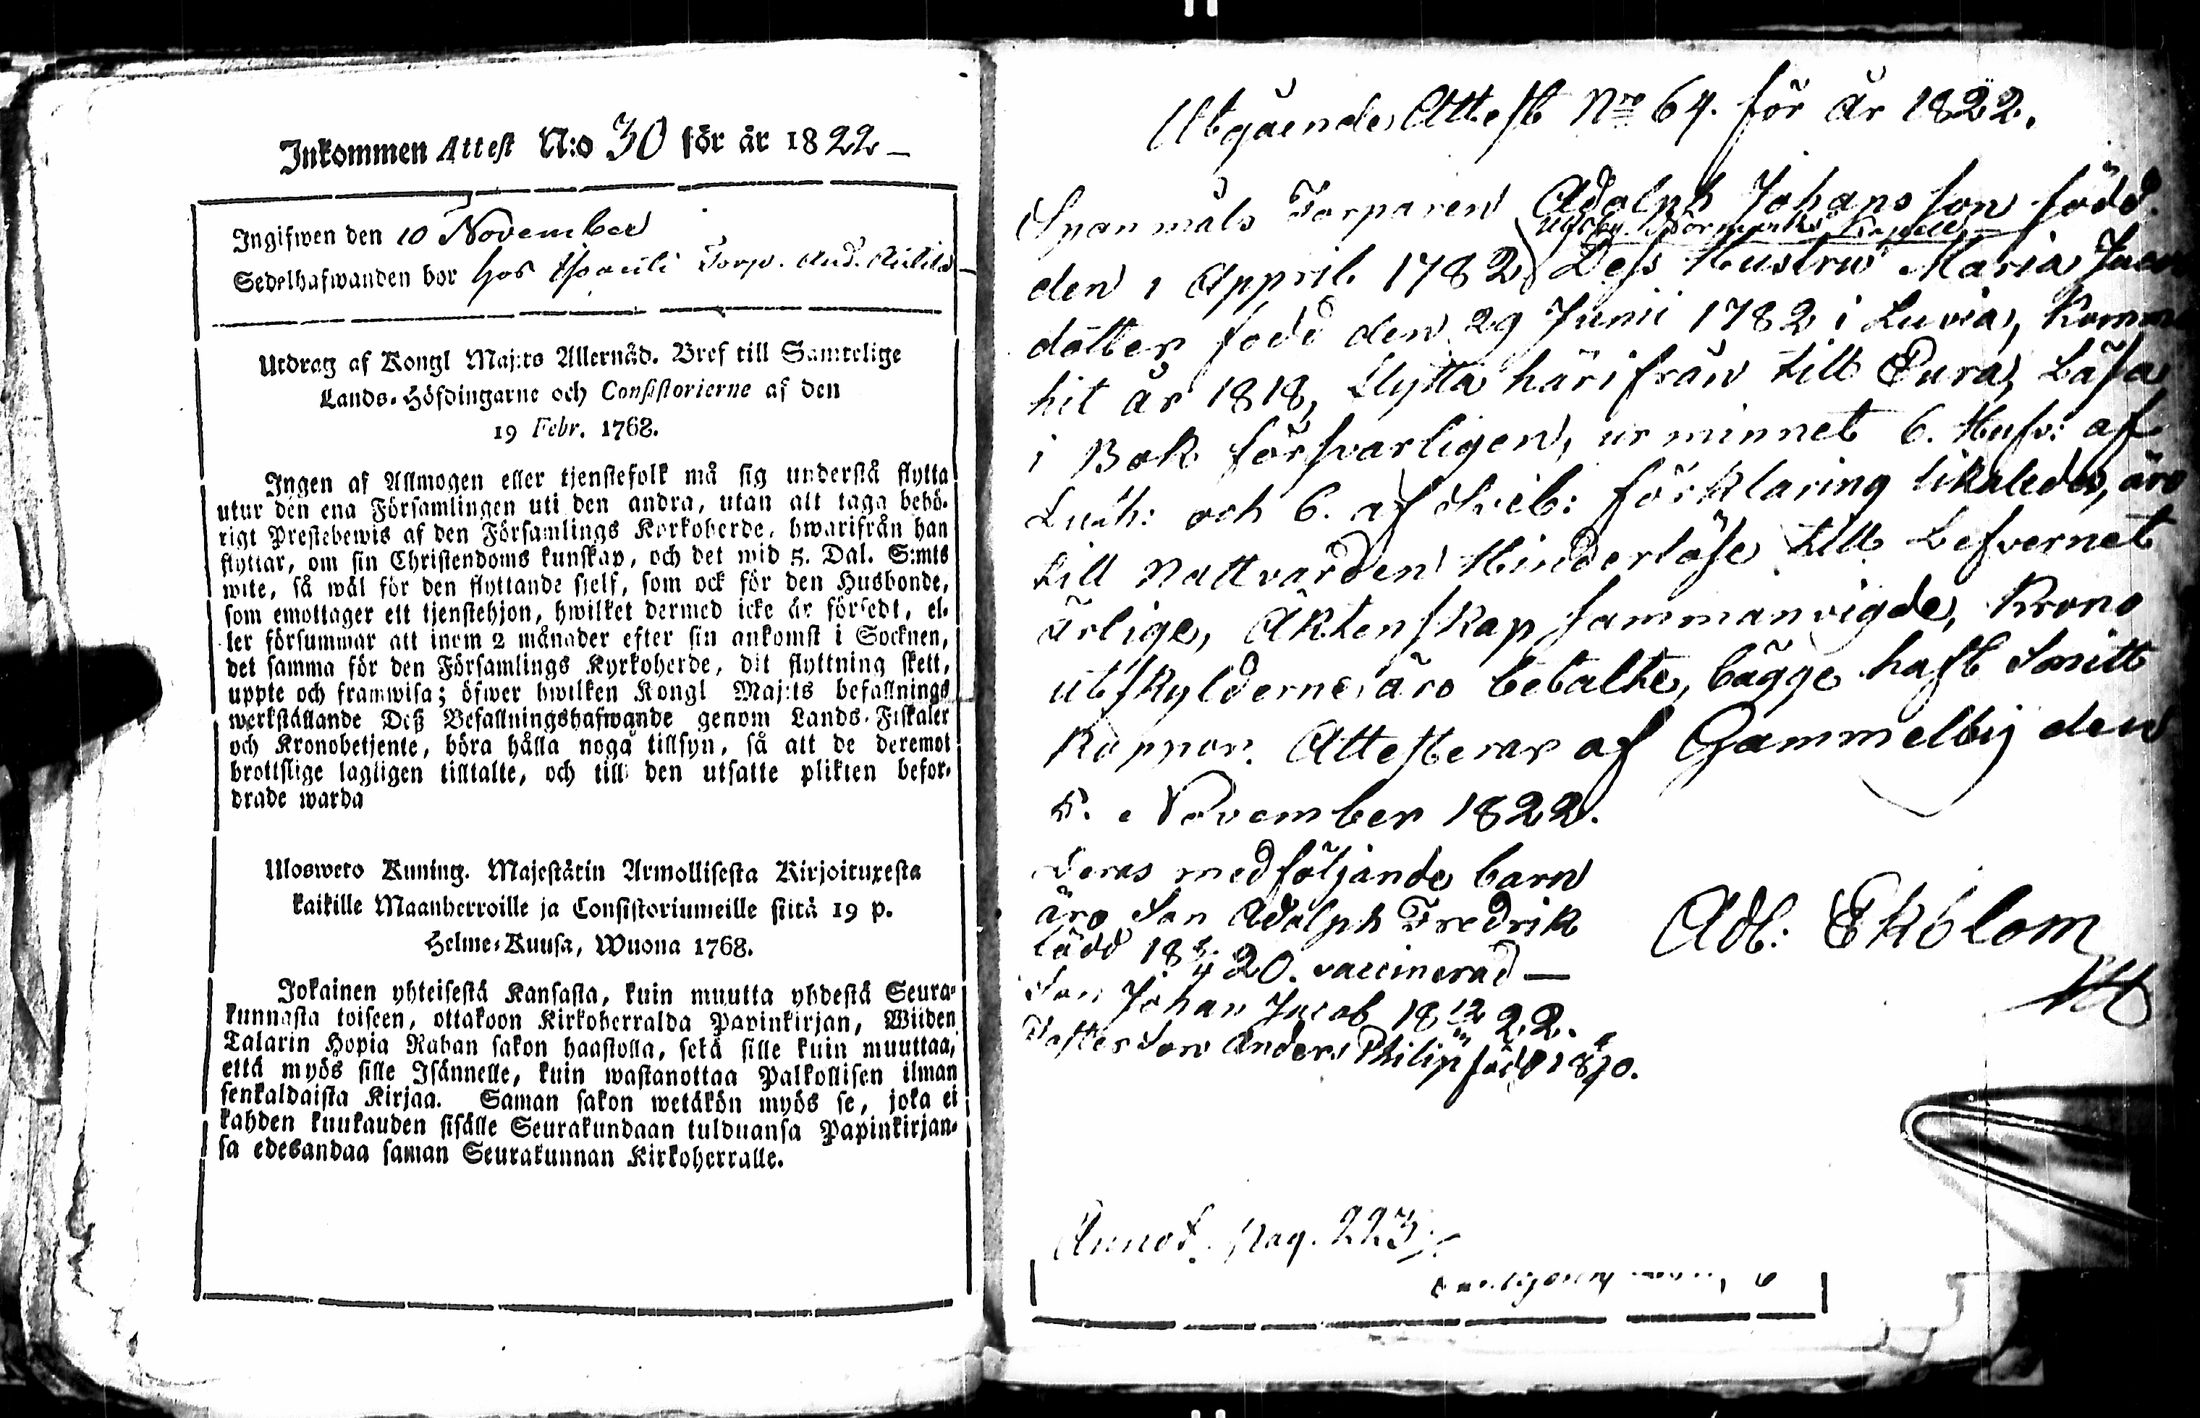 Inkommen Attest N:o 30 för år 1822 —
Ingifwen den 10 November
Sedelhafwanden bor hos Torp. And.
Utdrag af Kongl Maj:ts Allernåd. Bref till Samtelige
Lands-Höfdingarne och Consistorierne af den
19 Febr. 1768.
Ingen af Allmogen eller tjenstefolk må sig understå flytta
utur den ena Församlingen uti den andra, utan att taga behö-
rigt Prestebewis af den Församlings Kyrkoherde, hwarifrån han
flyttar, om sin Christendoms kunskap, och det wid 5. Dal. S:mts
wite, så wäl för den flyttande sielf, som ock för den Husbonde,
som emottager ett tjenstehjon, hwilket dermed icke är försedt, el-
ler försummar att inom 2 månader efter sin ankomst i Socknen,
det samma för den Församlings Kyrkoherde, dit flyttning skett,
uppte och framwisa; öfwer hwilken Kongl Maj:ts befallnings
werkställande Deß Befallningshafwande genom Lands-Fiskaler
och Kronobetjente, böra hålla noga tillsyn, så att de deremot
brottslige lagligen tilltalte, och till den utsatte plikten befor-
drade warda
Ulosweto Kuning. Majestätin Armollisesta Kirjoituxesta
kaikille Maanherroille ja Consistoriumeille siitä 19 p.
Helme-Kuusa, Wuona 1768.
Jokainen yhteisestä Kansasta, kuin muutta yhdestä Seura-
kunnasta toiseen, ottakoon Kirkoherralda Papinkirjan, Wiiden
Talarin Hopia Rahan sakon haastolla, sekä sille kuin muuttaa,
että myös sille Isännelle, kuin wastanottaa Palkollisen ilman
senkaldaista Kirjaa. Saman sakon wetäkön myös se, joka ei
kahden kuukauden sisälle Seurakundaan tulduansa Papinkirjan-
sa edesandaa saman Seurakunnan Kirkoherralle.
Utgående Attest No 64. för år 1822.
Spanmåls Torparen Adolph Johansson född
Kapell
den 1 Appril 1782 Dess Hustru Maria Jacobs
dotter född den 29 Junii 1782 i Luvia, komm
hit år 1818, flytta härifrån till Eura, Läsa
i Bok försvarligen, ur minnet 6. Hufv: af
Luth: och 6. af Sveb: förklaring likaledes, äro
till Nattvarden Hinderlöse till Lefvernet
ärlige, Äktenskap sammanvigde, Krono
utskylderne äro betalte, bägge haft Smitt
Koppor. Attesterar af Gammelby den
5. November 1822.
Deras medföljande barn
äro Son Adolph Fredrik
född 18 5/4 20. vaccinerad —
Son Johan Jacob 18 22.
Foster Son Anders Philip född
Adl: Ekblom
Annot. pag. 223